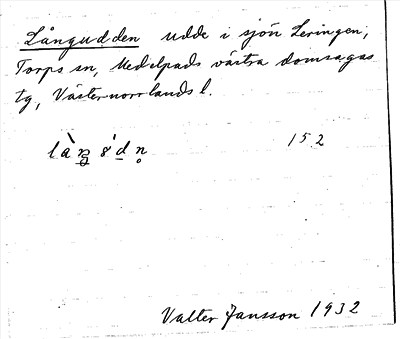 Långudden udde i sjön Leringen,
Torps sn, Medelpads västra domsagas
tg, Västernorrlands l.
152
Valter Jansson 1932